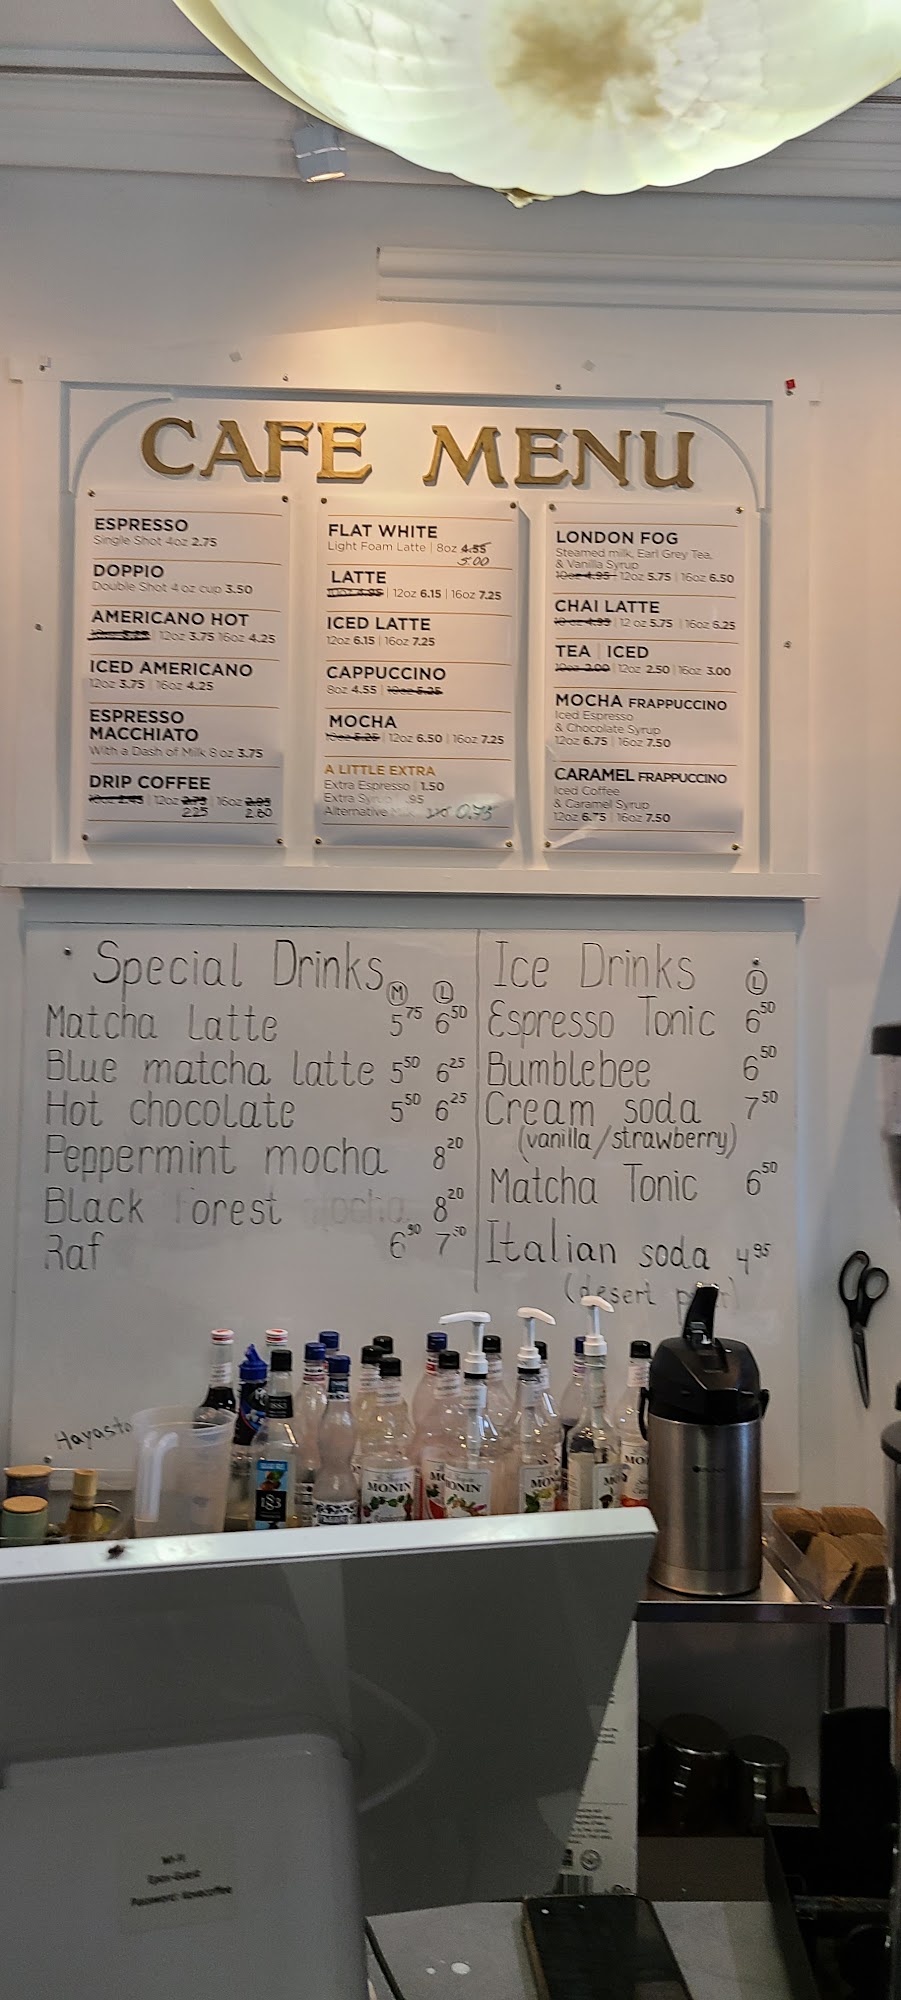 CAFE MENU
ESPRESSO
Single Shot 4oz 2.75
DOPPIO
Double Shot 4oz cup 3.50
AMERICANO HOT
12oz 3.75 16oz 4.25
ICED AMERICANO
12oz 3.75 | 16oz 4.25
ESPRESSO
MACCHIATO
With a Dash of Milk 8oz 3.75
DRIP COFFEE
10oz 2.45 | 12oz 2.75 | 16oz 2.95
2.25 2.60
FLAT WHITE
Light Foam Latte | 8oz 4.55
5.00
LATTE
10oz 4.95 | 12oz 6.15 | 16oz 7.25
ICED LATTE
12oz 6.15 | 16oz 7.25
CAPPUCCINO
8oz 4.55 | 10oz 5.25
MOCHA
10oz 5.25 | 12oz 6.50 | 16oz 7.25
A LITTLE EXTRA
Extra Espresso | 1.50
Extra Syrup .95
Alternative 0.75
LONDON FOG
Steamed milk, Earl Grey Tea,
& Vanilla Syrup
10oz 4.95 | 12oz 5.75 | 16oz 6.50
CHAI LATTE
10oz 4.95 | 12 oz 5.75 | 16oz 6.25
TEA | ICED
10oz 2.00 | 12oz 2.50 | 16oz 3.00
MOCHA FRAPPUCCINO
Iced Espresso
& Chocolate Syrup
12oz 6.75 | 16oz 7.50
CARAMEL FRAPPUCCINO
Iced Coffee
& Caramel Syrup
12oz 6.75 | 16oz 7.50
Special Drinks M L
Matcha Latte 5.75 6.50
Blue matcha latte 5.50 6.25
Hot chocolate 5.50 6.25
Peppermint mocha 8.20
Black forest mocha 8.20
Raf 6.90 7.50
Ice Drinks L
Espresso Tonic 6.50
Bumblebee 6.50
Cream soda 7.50
(vanilla/strawberry)
Matcha Tonic 6.50
Italian soda 4.95
(desert
Hayasta
1883
1883
MONIN
MONIN
MONIN
Wi-Fi